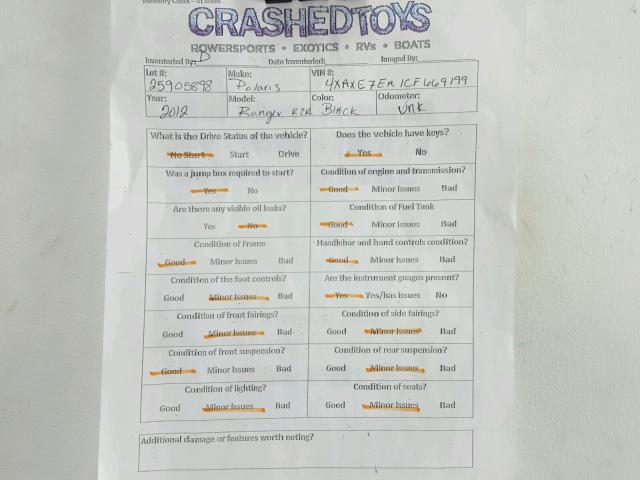 CRASHEDTOYS
POWERSPORTS • EXOTICS • RVs • BOATS
Inventoried By: D Date Inventoried: Imaged By:
Lot #: Make: VIN #:
25905898 Polaris 4XAXE7EA1CF669199
Year: Model: Color: Odometer:
2012 Ranger RZR Black Unk
What is the Drive Status of the vehicle? Does the vehicle have keys?
No Start Start Drive Yes No
Was a jump box required to start? Condition of engine and transmission?
Yes No Good Minor Issues Bad
Are there any visible oil leaks? Condition of Fuel Tank
Yes No Good Minor Issues Bad
Condition of Frame Handlebar and hand controls condition?
Good Minor Issues Bad Good Minor Issues Bad
Condition of the foot controls? Are the instrument guages present?
Good Minor Issues Bad Yes Yes/has issues No
Condition of front fairings? Condition of side fairings?
Good Minor Issues Bad Good Minor Issues Bad
Condition of front suspension? Condition of rear suspension?
Good Minor Issues Bad Good Minor Issues Bad
Condition of lighting? Condition of seats?
Good Minor Issues Bad Good Minor Issues Bad
Additional damage or features worth noting?